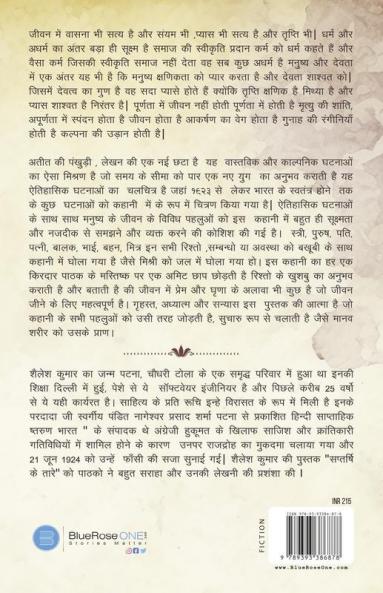 जीवन में वासना भी सत्य है और संयम भी ,प्यास भी सत्य है और तृप्ति भी| धर्म और
अधर्म का अंतर बड़ा ही सूक्ष्म है समाज की स्वीकृति प्रदान कर्म को धर्म कहते हैं और
वैसा कर्म जिसकी स्वीकृति समाज नहीं देता वह सब कुछ अधर्म है मनुष्य और देवता
में एक अंतर यह भी है कि मनुष्य क्षणिकता को प्यार करता है और देवता शाश्वत को|
जिसमें देवत्व का गुण है वह सदा प्यासे होते हैं क्योंकि तृप्ति क्षणिक है मिथ्या है और
प्यास शाश्वत है निरंतर है| पूर्णता में जीवन नहीं होती पूर्णता में होती है मृत्यु की शांति,
अपूर्णता में स्पंदन होता है जीवन होता है आकर्षण का वेग होता है गुनाह की रंगीनियाँ
होती है कल्पना की उड़ान होती है|
अतीत की पंखुड़ी , लेखन की एक नई छटा है यह वास्तविक और काल्पनिक घटनाओं
का ऐसा मिश्रण है जो समय के सीमा को पार एक नए युग का अनुभव कराती है यह
ऐतिहासिक घटनाओं का चलचित्र है जहां १९२३ से लेकर भारत के स्वतंत्र होने तक
के कुछ घटनाओं को कहानी में के रूप में चित्रण किया गया है| ऐतिहासिक घटनाओं
के साथ साथ मनुष्य के जीवन के विविध पहलुओं को इस कहानी में बहुत ही सूक्ष्मता
और नजदीक से समझने और व्यक्त करने की कोशिश की गई है। स्त्री, पुरुष, पति,
पत्नी, बालक, भाई, बहन, मित्र इन सभी रिश्तो ,सम्बन्धो या अवस्था को बखूबी के साथ
कहानी में घोला गया है जैसे मिश्री को जल में घोला गया हो। इस कहानी का हर एक
किरदार पाठक के मस्तिष्क पर एक अमिट छाप छोड़ती है रिश्तो के खुशबु का अनुभव
कराती है और बताती है की जीवन में प्रेम और घृणा के अलावा भी कुछ है जो जीवन
जीने के लिए महत्वपूर्ण है। गृहस्त, अध्यात्म और सन्यास इस पुस्तक की आत्मा है जो
कहानी के सभी पहलुओं को उसी तरह जोड़ती है, सुचारु रूप से चलाती है जैसे मानव
शरीर को उसके प्राण।
शैलेश कुमार का जन्म पटना, चौधरी टोला के एक समृद्ध परिवार में हुआ था इनकी
शिक्षा दिल्ली में हुई, पेशे से ये सॉफ्टवेयर इंजीनियर है और पिछले करीब 25 वर्षों
से ये यही कार्यरत है। साहित्य के प्रति रूचि इन्हे विरासत के रूप में मिली है इनके
परदादा जी स्वर्गीय पंडित नागेश्वर प्रसाद शर्मा पटना से प्रकाशित हिन्दी साप्ताहिक
"तरुण भारत " के संपादक थे अंग्रेजी हुकूमत के खिलाफ साजिश और क्रांतिकारी
गतिविधियों में शामिल होने के कारण उनपर राजद्रोह का मुकदमा चलाया गया और
21 जून 1924 को उन्हें फाँसी की सजा सुनाई गई| शैलेश कुमार की पुस्तक "सप्तर्षि
के तारे" को पाठको ने बहुत सराहा और उनकी लेखनी की प्रशंशा की ।
INR 215
FICTION
BlueRose ONE
Stories Matter
9 789393 386878
www.BlueRoseOne.com